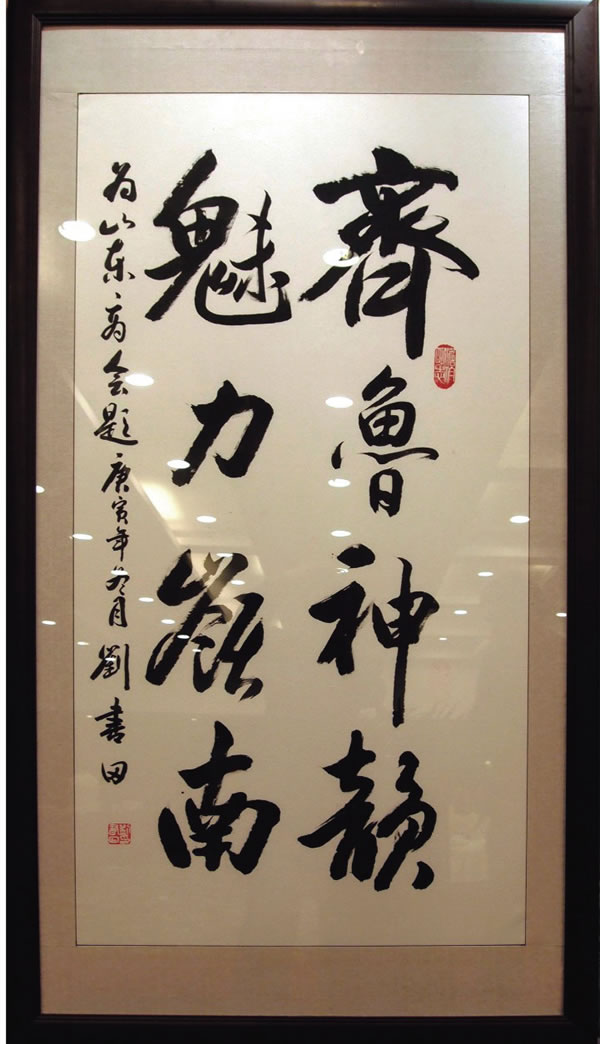 齊魯神韻
魅力嶺南
为山東商会題庚寅年冬月劉書田